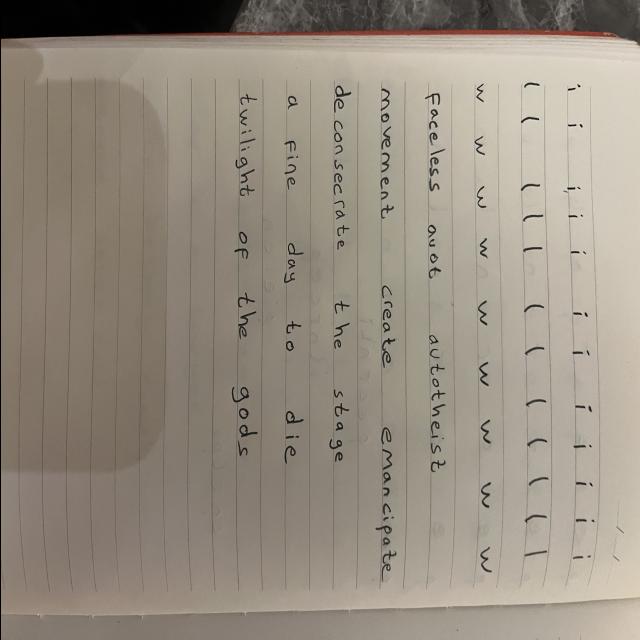 i i i i i i i i i i i i
l l l l l l l l l l l l
w w w w w w w w w
faceless autotheist
movement create emancipate
deconsecrate the stage
a fine day to die
twilight of the gods